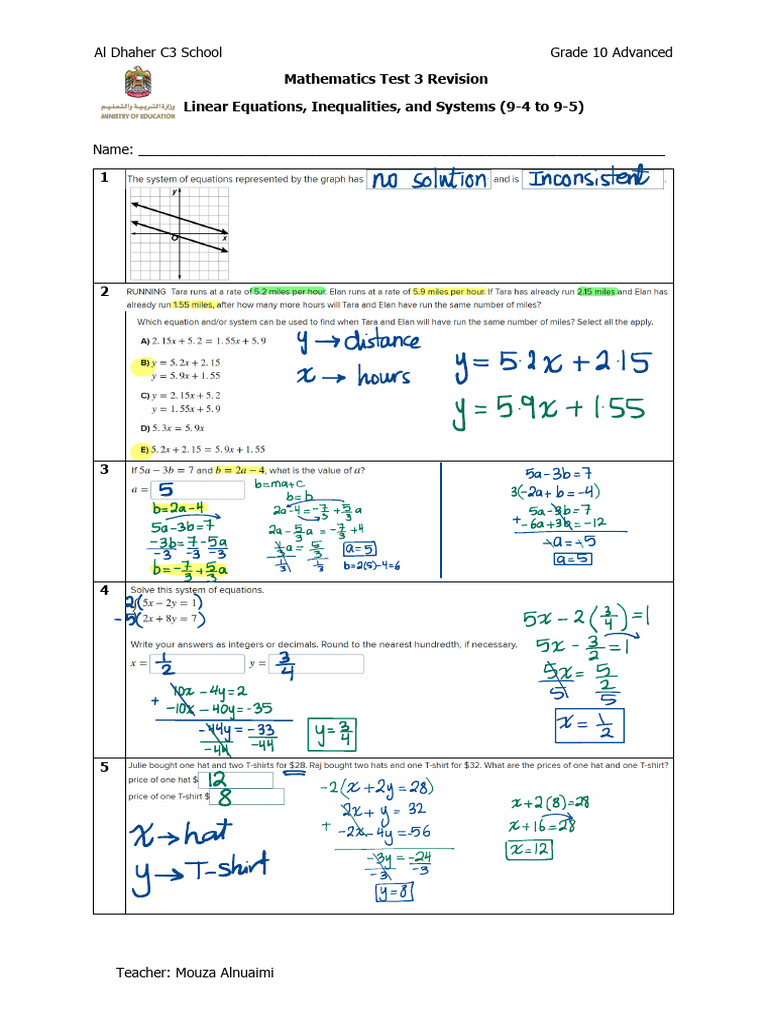 Al Dhaher C3 School Grade 10 Advanced
Mathematics Test 3 Revision
وزارة التربية والتعليم
MINISTRY OF EDUCATION
Linear Equations, Inequalities, and Systems (9-4 to 9-5)
Name: ____________________
1
The system of equations represented by the graph has no solution and is Inconsistent.
y
O
x
2
RUNNING Tara runs at a rate of 5.2 miles per hour. Elan runs at a rate of 5.9 miles per hour. If Tara has already run 2.15 miles and Elan has
already run 1.55 miles, after how many more hours will Tara and Elan have run the same number of miles?
Which equation and/or system can be used to find when Tara and Elan will have run the same number of miles? Select all the apply.
A) 2.15x + 5.2 = 1.55x + 5.9
B) y = 5.2x + 2.15
y = 5.9x + 1.55
C) y = 2.15x + 5.2
y = 1.55x + 5.9
D) 5.3x = 5.9x
E) 5.2x + 2.15 = 5.9x + 1.55
y → distance
x → hours
y = 5.2x + 2.15
y = 5.9x + 1.55
3
If 5a − 3b = 7 and b = 2a − 4, what is the value of a?
a = 5
b=2a-4
5a-3b=7
-3b=7-5a
-3 -3 -3
b=-7/3+5/3a
b=ma+c
b=b
2a-4=-7/3+5/3a
2a-5/3a=-7/3+4
1/3a=5/3
1/3 1/3
a=5
b=2(5)-4=6
5a-3b=7
3(-2a+b=-4)
5a-3b=7
+ -6a+3b=-12
-a=-5
a=5
4
Solve this system of equations.
2(5x − 2y = 1)
-5(2x + 8y = 7)
Write your answers as integers or decimals. Round to the nearest hundredth, if necessary.
x = 1/2 y = 3/4
10x-4y=2
+ -10x-40y=-35
-44y=-33
-44 -44
y=3/4
5x-2(3/4)=1
5x-3/2=1
5x=5/2
5 5
x=1/2
5
Julie bought one hat and two T-shirts for $28. Raj bought two hats and one T-shirt for $32. What are the prices of one hat and one T-shirt?
price of one hat $ 12
price of one T-shirt $ 8
x→hat
y→T-shirt
-2(x+2y=28)
2x+y=32
+ -2x-4y=-56
-3y=-24
-3 -3
y=8
x+2(8)=28
x+16=28
x=12
Teacher: Mouza Alnuaimi